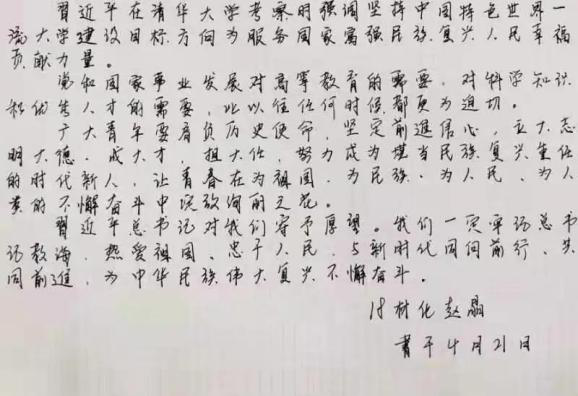 习近平在清华大学考察时强调坚持中国特色世界一
流大学建设目标方向为服务国家富强民族复兴人民幸福
贡献力量。
党和国家事业发展对高等教育的需要，对科学知识
和优秀人才的需要，比以往任何时候都更为迫切。
广大青年要肩负历史使命，坚定前进信心，立大志
明大德、成大才、担大任，努力成为堪当民族复兴重任
的时代新人，让青春在为祖国、为民族、为人民、为人
类的不懈奋斗中绽放绚丽之花。
习近平总书记对我们寄予厚望。我们一定牢记总书
记教诲，热爱祖国、忠于人民，与新时代同向前行、共
同前进，为中华民族伟大复兴不懈奋斗。
18材化赵晶
书于4月21日